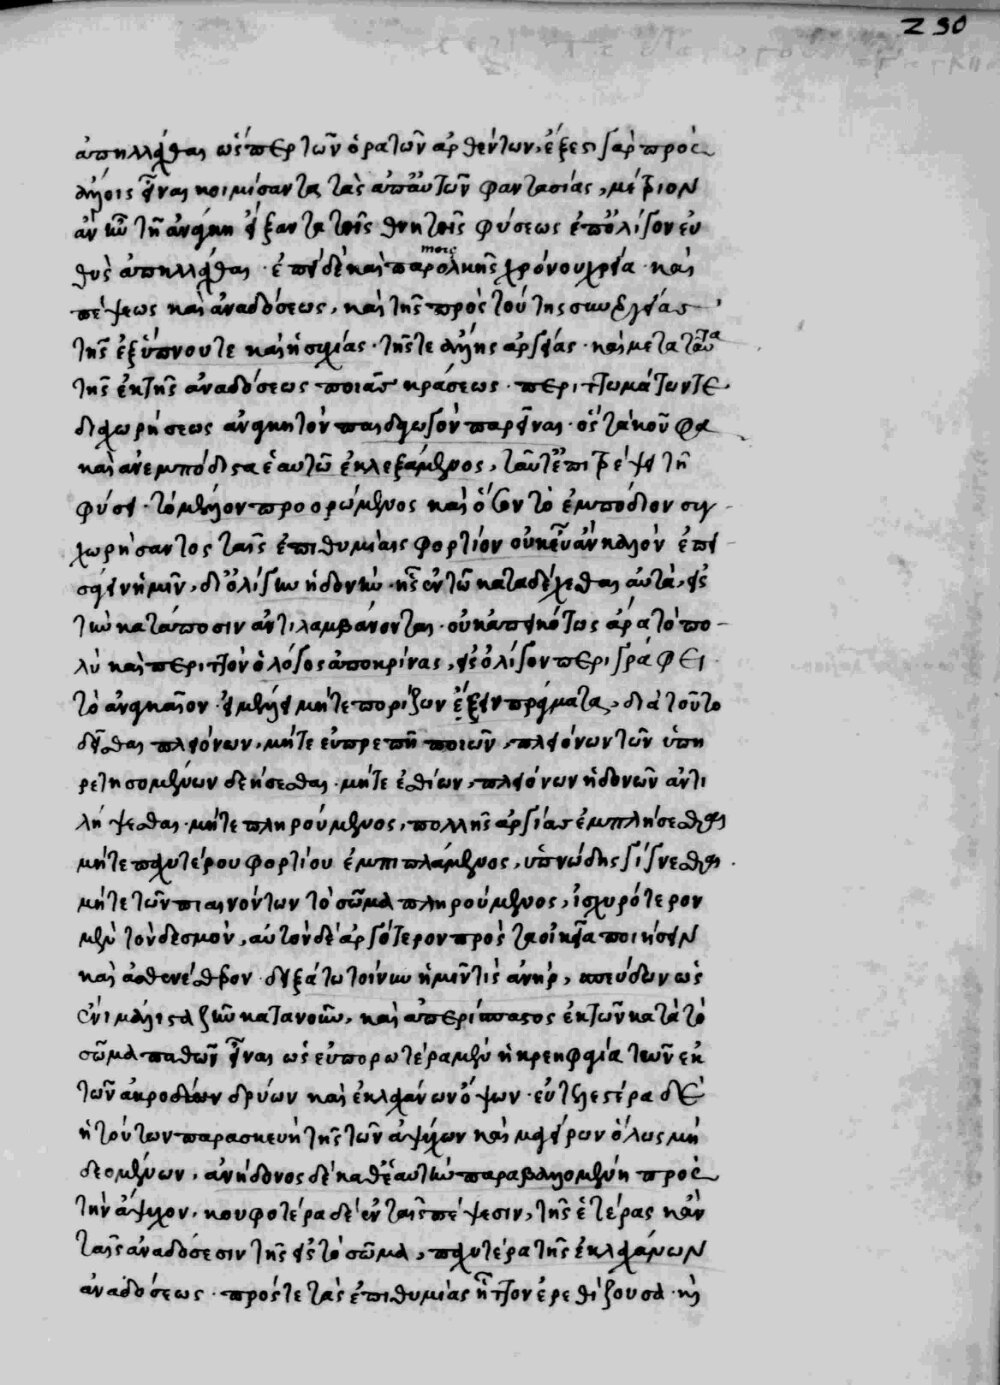 ἀπηλλάχθαι ὥσπερ τῶν ὁρατῶν ἀρθέντων, ἐξέσται γὰρ πρὸς
ἄλλοις εἶναι κοιμίσαντα τὰς ἀπ' αὐτῶν φαντασίας, μέτριον
ἂν ἦν τῇ ἀνάγκῃ εἴξαντα τῆς θνητῆς φύσεως ἐπ' ὀλίγον εὐ
θὺς ἀπηλλάχθαι· ἐπεὶ δὲ καὶ παρολκῆς χρόνου χρεία· καὶ
πέψεως καὶ ἀναδόσεως, καὶ τῆς πρὸς τούτης συνεργίας
τῆς ἐξ ὕπνου τε καὶ ἡσυχίας· τῆς τε ἄλλης ἀργίας· καὶ μετὰ ταῦτα
τῆς ἐκ τῆς ἀναδόσεως ποιᾶς κράσεως· περιττωμάτων τε
διαχωρήσεως ἀναγκητὸν παιδαγωγὸν παρεῖναι· ὃς τὰ κοῦφα
καὶ ἀνεμπόδιστα ἑαυτῶ ἐκλεξάμενος, ταῦτ' ἐπιτρέψει τῇ
φύσει· τὸ μέλλον προορώμενος καὶ ὅσον τὸ ἐμπόδιον συγ
χωρήσαντος ταῖς ἐπιθυμίαις φορτίον οὐκ εὖ ἀνκλιον ἐπει
σάγειν ἡμῖν, δι' ὀλίγην ἡδονὴν· τῆς ἐν τῶ καταδέχεσθαι αὐτὰ, εἰς
τὴν κατάποσιν ἀντιλαμβάνονται· οὐκ ἀπεικότως ἄρα τὸ πο
λὺ καὶ περιττὸν ὁ λόγος ἀποκρίνας, εἰς ὀλίγον περιγράφει
τὸ ἀναγκαῖον· εἰ μέλλει μήτε πορίζων ἕξειν πράγματα, διὰ τοῦτο
δεῖσθαι πλειόνων, μήτε εὐπρεπῆ ποιῶν, πλειόνων τῶν ὑπη
ρετησομένων δεήσεσθαι· μήτε ἐσθίων, πλειόνων ἡδονῶν ἀντι
λήψεσθαι· μήτε πληρούμενος, πολλῆς ἀργίας ἐμπλήσεσθαι
μήτε παχυτέρου φορτίου ἐμπιπλάμενος, ὑπνώδης γίγνεσθαι·
μήτε τῶν πιαινόντων τὸ σῶμα πληρούμενος, ἰσχυρότερον
μὲν τὸν δεσμὸν, αὐτὸν δὲ ἀργότερον πρὸς τὰ οἰκεῖα ποιήσειν
καὶ ἀσθενέστερον· δειξάτω τοίνυν ἡμῖν τὶς ἀνὴρ, σπεύδων ὡς
ἔνι μάλιστα ζῆν κατὰ νοῦν, καὶ ἀπερίσπαστος ἐκ τῶν κατὰ τὸ
σῶμα παθῶν εἶναι ὡς εὐπορωτέρα μὲν ἡ κρεηφαγία τῶν ἐκ
τῶν ἀκροδρύων καὶ ἐκ λαχάνων ὄψων· εὐτελεστέρα δὲ
ἡ τούτων παρασκευὴ τῆς τῶν ἀψύχων καὶ μαγείρων ὅλως μὴ
δεομένων, ἀνήδονος δὲ καθ' ἑαυτὴν παραβαλλομένη πρὸς
τὴν ἄψυχον, κουφοτέρα δὲ ἐν ταῖς πέψεσιν, τῆς ἑτέρας κἂν
ταῖς ἀναδόσεσιν τῆς εἰς τὸ σῶμα, παχυτέρα τῆς ἐκ λαχάνων
ἀναδόσεως· πρός τε τὰς ἐπιθυμίας ἧττον ἐρεθίζουσα· καὶ